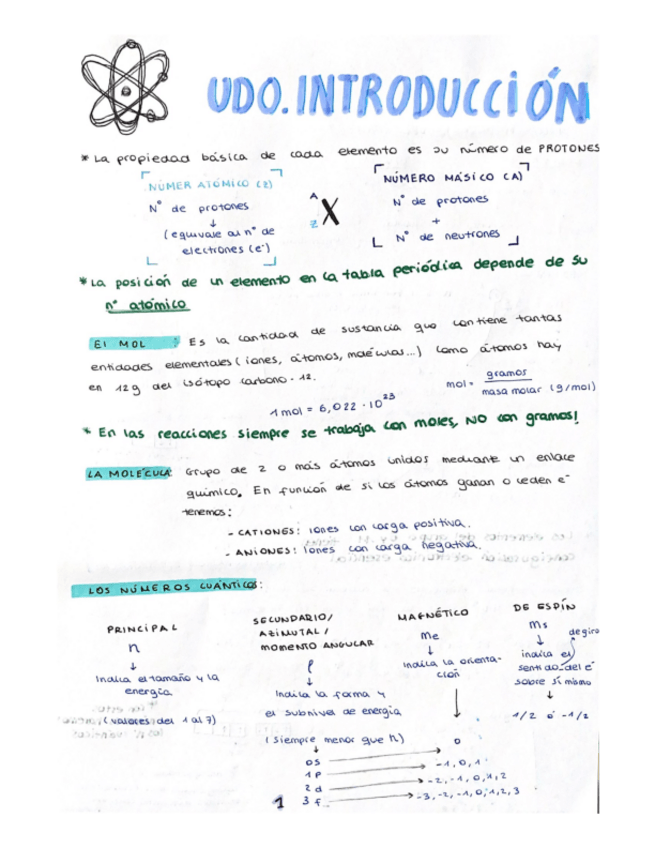 UDO. INTRODUCCIÓN
* La propiedad básica de cada elemento es su número de PROTONES
NÚMER ATÓMICO (Z)
Nº de protones
↓
(equivale al nº de
electrones (e⁻)
A
Z X
NÚMERO MÁSICO (A)
Nº de protones
+
Nº de neutrones
* La posición de un elemento en la tabla periódica depende de su
nº atómico
El MOL : Es la cantidad de sustancia que contiene tantas
entidades elementales (iones, átomos, moléculas...) como átomos hay
en 12g del isótopo carbono-12.
mol = gramos
masa molar (g/mol)
1 mol = 6,022 · 10²³
* En las reacciones siempre se trabaja con moles, NO con gramos!
LA MOLÉCULA: Grupo de 2 o más átomos unidos mediante un enlace
químico. En función de si los átomos ganan o ceden e⁻
tenemos:
- CATIONES: iones con carga positiva.
- ANIONES: iones con carga negativa.
LOS NÚMEROS CUÁNTICOS:
PRINCIPAL
n
↓
Indica el tamaño y la
energía
(valores del 1 al 7)
SECUNDARIO/
AZIMUTAL/
MOMENTO ANGULAR
ℓ
↓
Indica la forma y
el subnivel de energía
(siempre menor que n)
↓
0 s
1 p
2 d
3 f
MAGNÉTICO
me
↓
Indica la orienta-
ción
0
-1, 0, 1
-2, -1, 0, 1, 2
-3, -2, -1, 0, 1, 2, 3
DE ESPÍN
Ms
↓
de giro
indica el
sentido del e⁻
sobre sí mismo
↓
1/2 ó -1/2
1